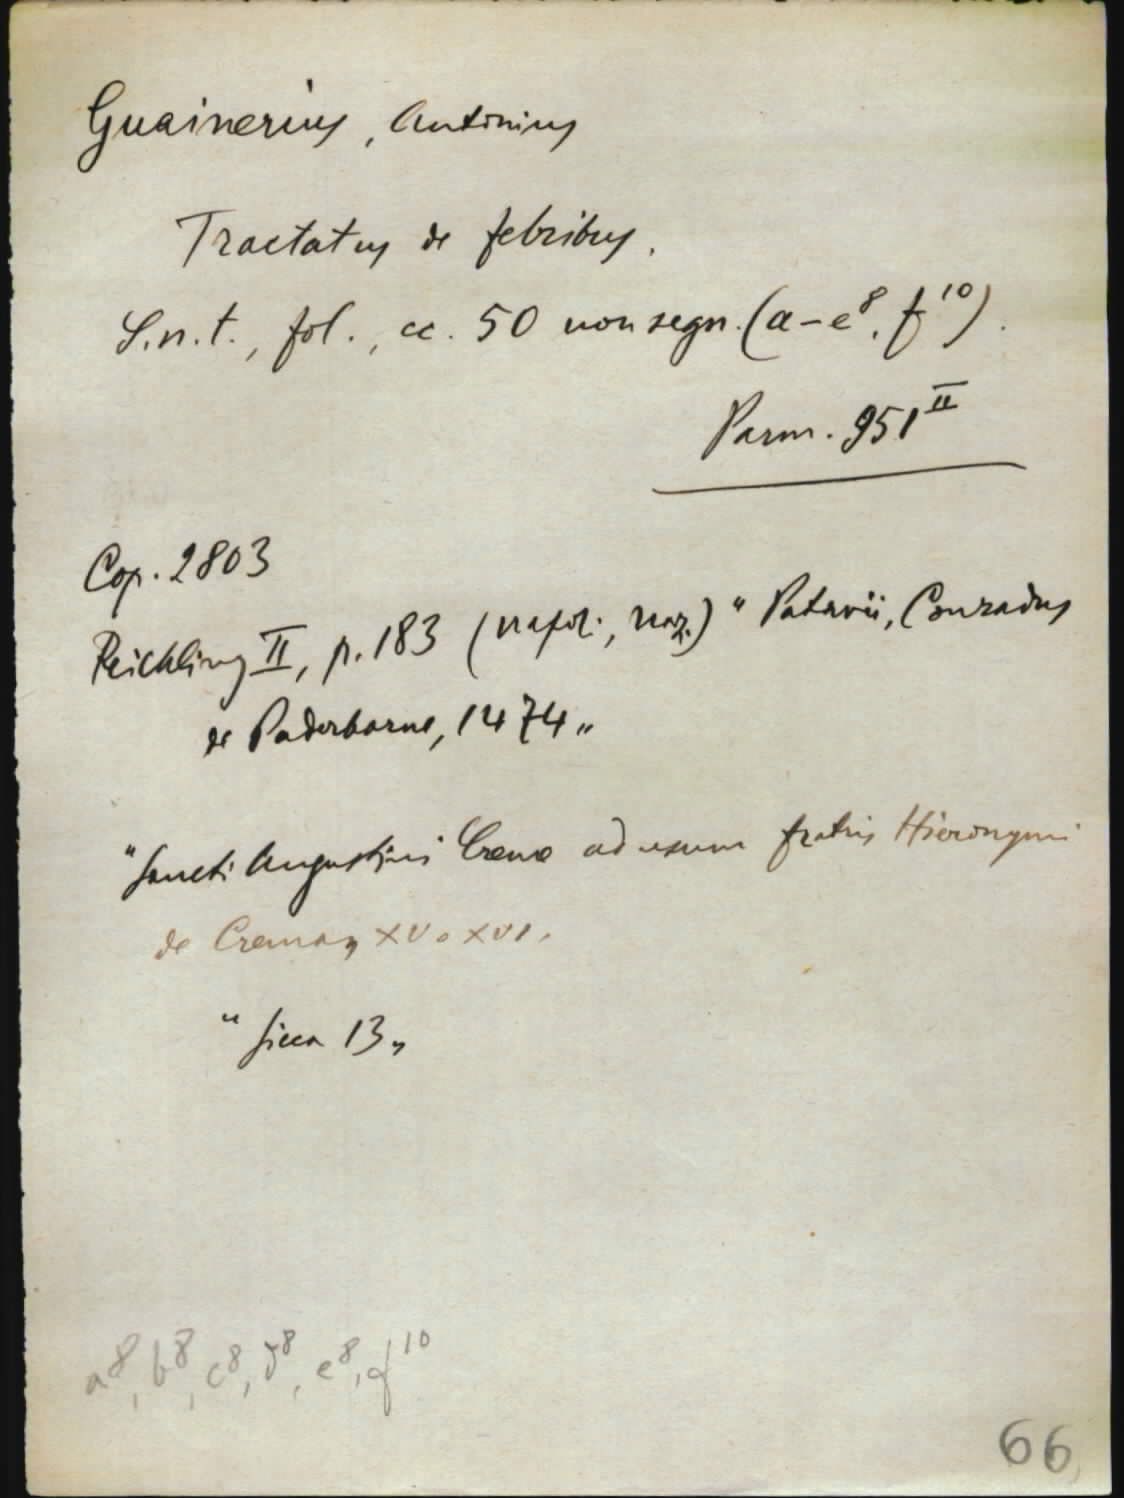 Guainerius, Antonius
Tractatus de febribus.
S.n.t., fol., cc. 50 non segn. (a-e⁸, f¹⁰).
Parm. 951ᴵᴵ
Cop. 2803
Reichling II, p. 183 (napol., naz.) "Patavii, Conradus
de Paderborne, 1474"
"Sancti Augustini Creme ad usum fratris Hieronymi
de Crema" XV o XVI.
"Sicca 13"
a⁸, b⁸, c⁸, d⁸, e⁸, f¹⁰
66